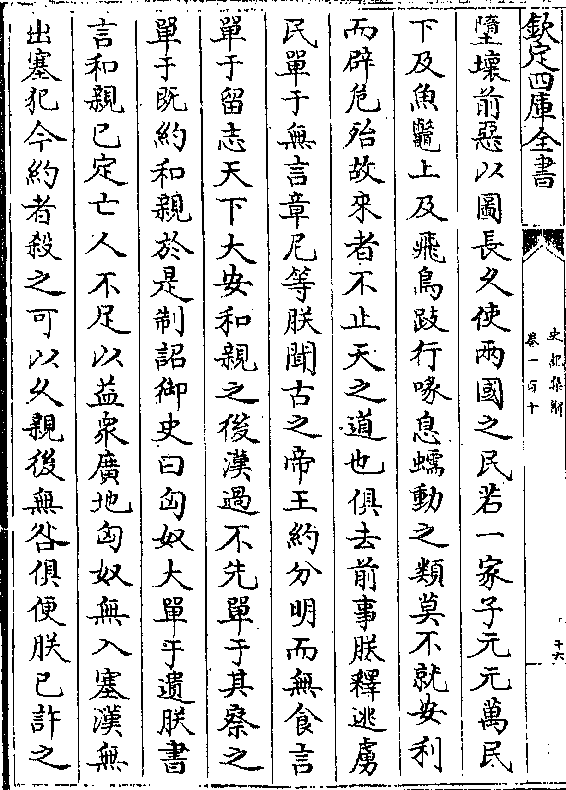 欽定四庫全書
史記集解
卷一百十
十六
墮壞前惡以圖長久使兩國之民若一家子元元萬民
下及魚鼈上及飛鳥跂行喙息蠕動之類莫不就安利
而辟危殆故來者不止天之道也俱去前事朕釋逃虜
民單于無言章尼等朕聞古之帝王約分明而無食言
單于留志天下大安和親之後漢過不先單于其察之
單于既約和親於是制詔御史曰匈奴大單于遺朕書
言和親已定亡人不足以益眾廣地匈奴無入塞漢無
出塞犯今約者殺之可以久親後無咎俱便朕已許之